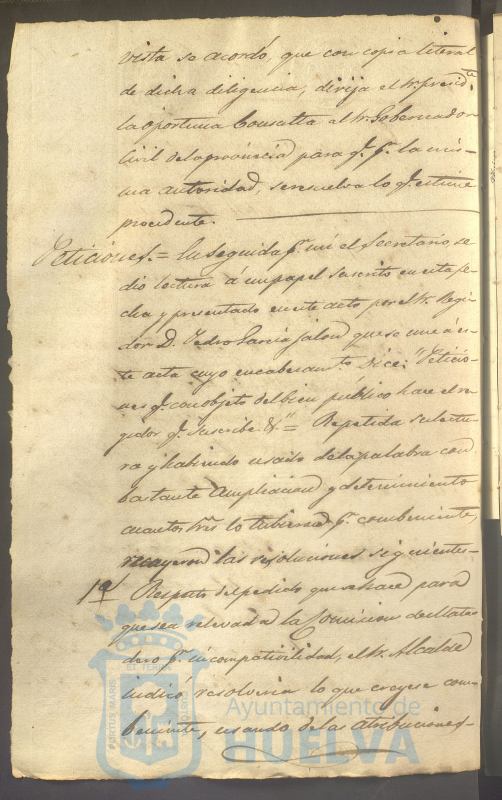 vista se acordó, que con copia literal
de dicha diligencia, dirija el Sr. Presid.te
la oportuna Consulta al Sr. Gobernador
Civil de la provincia para q.e p.r la mis-
ma autoridad, se resuelva lo q.e estime
procedente.
Peticiones.= En seguida p.r mi el Secretario se
dio lectura á un papel suscrito en esta fe-
cha y presentado en este acto por el Sr. Regi-
dor D. Pedro Garcia Jalon que se une á es-
te acta cuyo encabezam.to dice: "Peticio-
nes q.e con objeto del bien público hace el re-
gidor q.e suscribe &."= Repetida su lectu-
ra y habiendo usado de la palabra con
bastante ampliacion y detenimiento
cuantos Sres lo tubieron p.r combeniente,
recayeron las resoluciones siguientes-
1ª Respecto del pedido que se hace para
que sea relevada la Comision de
dero p.r incompativilidad, el Sr. Alcalde
indicó resolveria lo que creyese com-
beniente, usando de las atribuciones-
PORTUS MARIS
ET TERRE
CUSTODIA
Ayuntamiento de
HUELVA